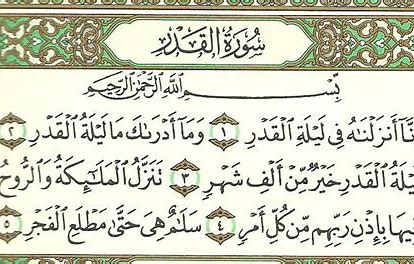 سُورَةُ القَدْرِ
بِسْمِ اللَّهِ الرَّحْمَٰنِ الرَّحِيمِ
نَّا أَنزَلْنَٰهُ فِي لَيْلَةِ الْقَدْرِ ١ وَمَا أَدْرَىٰكَ مَا لَيْلَةُ الْقَدْرِ ٢
يْلَةُ الْقَدْرِ خَيْرٌ مِّنْ أَلْفِ شَهْرٍ ٣ تَنَزَّلُ الْمَلَٰٓئِكَةُ وَالرُّوحُ
فِيهَا بِإِذْنِ رَبِّهِم مِّن كُلِّ أَمْرٍ ٤ سَلَٰمٌ هِيَ حَتَّىٰ مَطْلَعِ الْفَجْرِ ٥